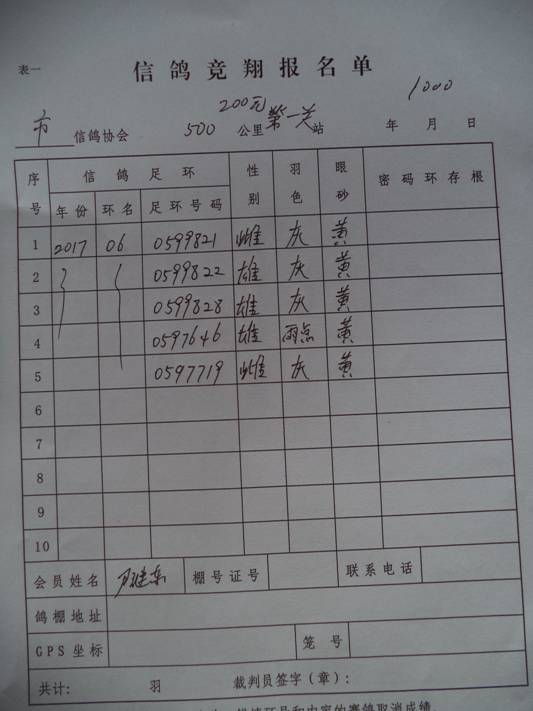 表一
信鸽竞翔报名单
200元
1000
市 信鸽协会 500 公里 第一关 站 年 月 日
序号 信鸽足环 性别 羽色 眼砂 密码环存根
年份 环名 足环号码
1 2017 06 0599821 雌 灰 黄
2 0599822 雄 灰 黄
3 0599828 雄 灰 黄
4 0597646 雄 雨点 黄
5 0597719 雌 灰 黄
6
7
8
9
10
会员姓名 棚号证号 联系电话
鸽棚地址
GPS坐标 笼号
共计: 羽 裁判员签字(章):
环号和内容的赛鸽取消成绩。